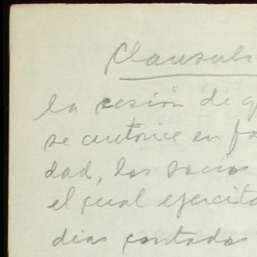 Clausul
la cesión de q
se autorice en fa
dad, los socios
el cual ejercita
dias contado